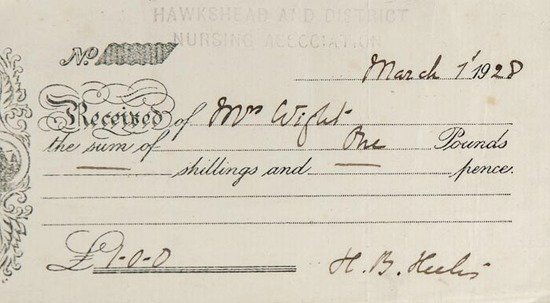 HAWKSHEAD AND DISTRICT
NURSING ASSOCIATION
No.
March 1st 1928
Received of Mrs Wight
the sum of One Pounds
— shillings and — pence.
£1-0-0 H. B. Heelis